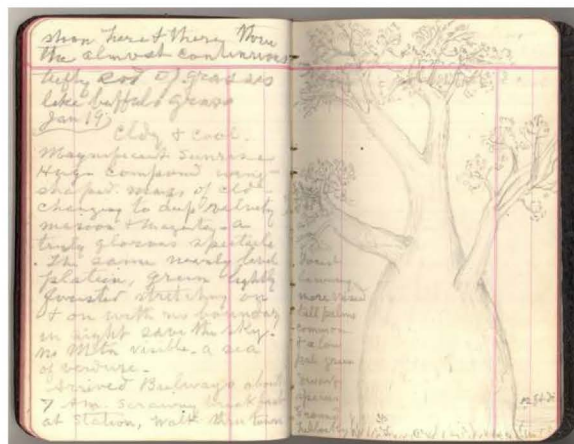 shon here & there thru
the almost continuous
tufty sod of grasses
like buffalo grass
Jan 19.
Cldy & cool.
Magnificent sunrise
Huge compound wing-
shaped mass of cld
changing to deep velvety
maroon & magenta - a
truly glorious spectacle
The same nearly level
plateau, green lightly
forested stretching on
& on with no boundary
in sight save the sky.
No Mtn visible - a sea
of verdure.
Arrived Bulwayo about
7 A.M. breakfast
at station, walk thru town
Forest
more varied
tall palms
common
& a low
pale green
species